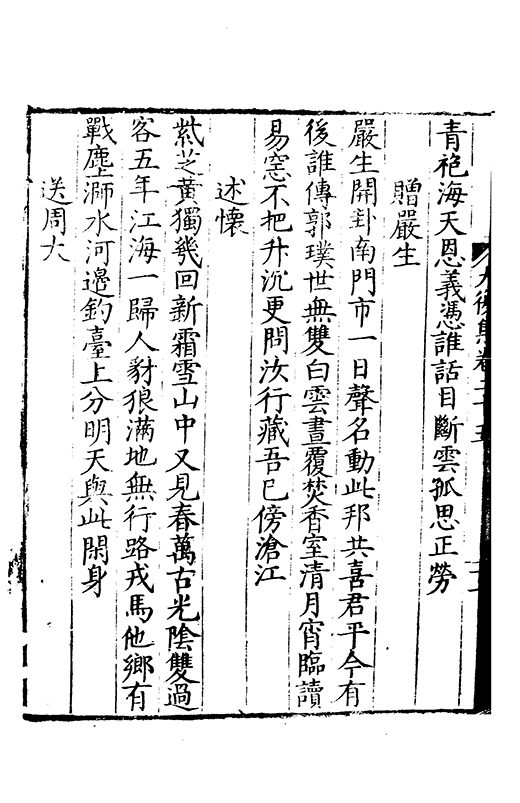 青袍海天恩義憑誰話目斷雲孤思正勞
贈嚴生
嚴生開卦南門市一日聲名動此邦共喜君平今有
後誰傳郭璞世無雙白雲晝覆焚香室清月宵臨讀
易窓不把升沉更問汝行藏吾已傍滄江
述懷
紫芝黃獨幾回新霜雪山中又見春萬古光陰雙過
客五年江海一歸人豺狼滿地無行路戎馬他鄉有
戰塵㴲水河邊釣臺上分明天與此閑身
送周大